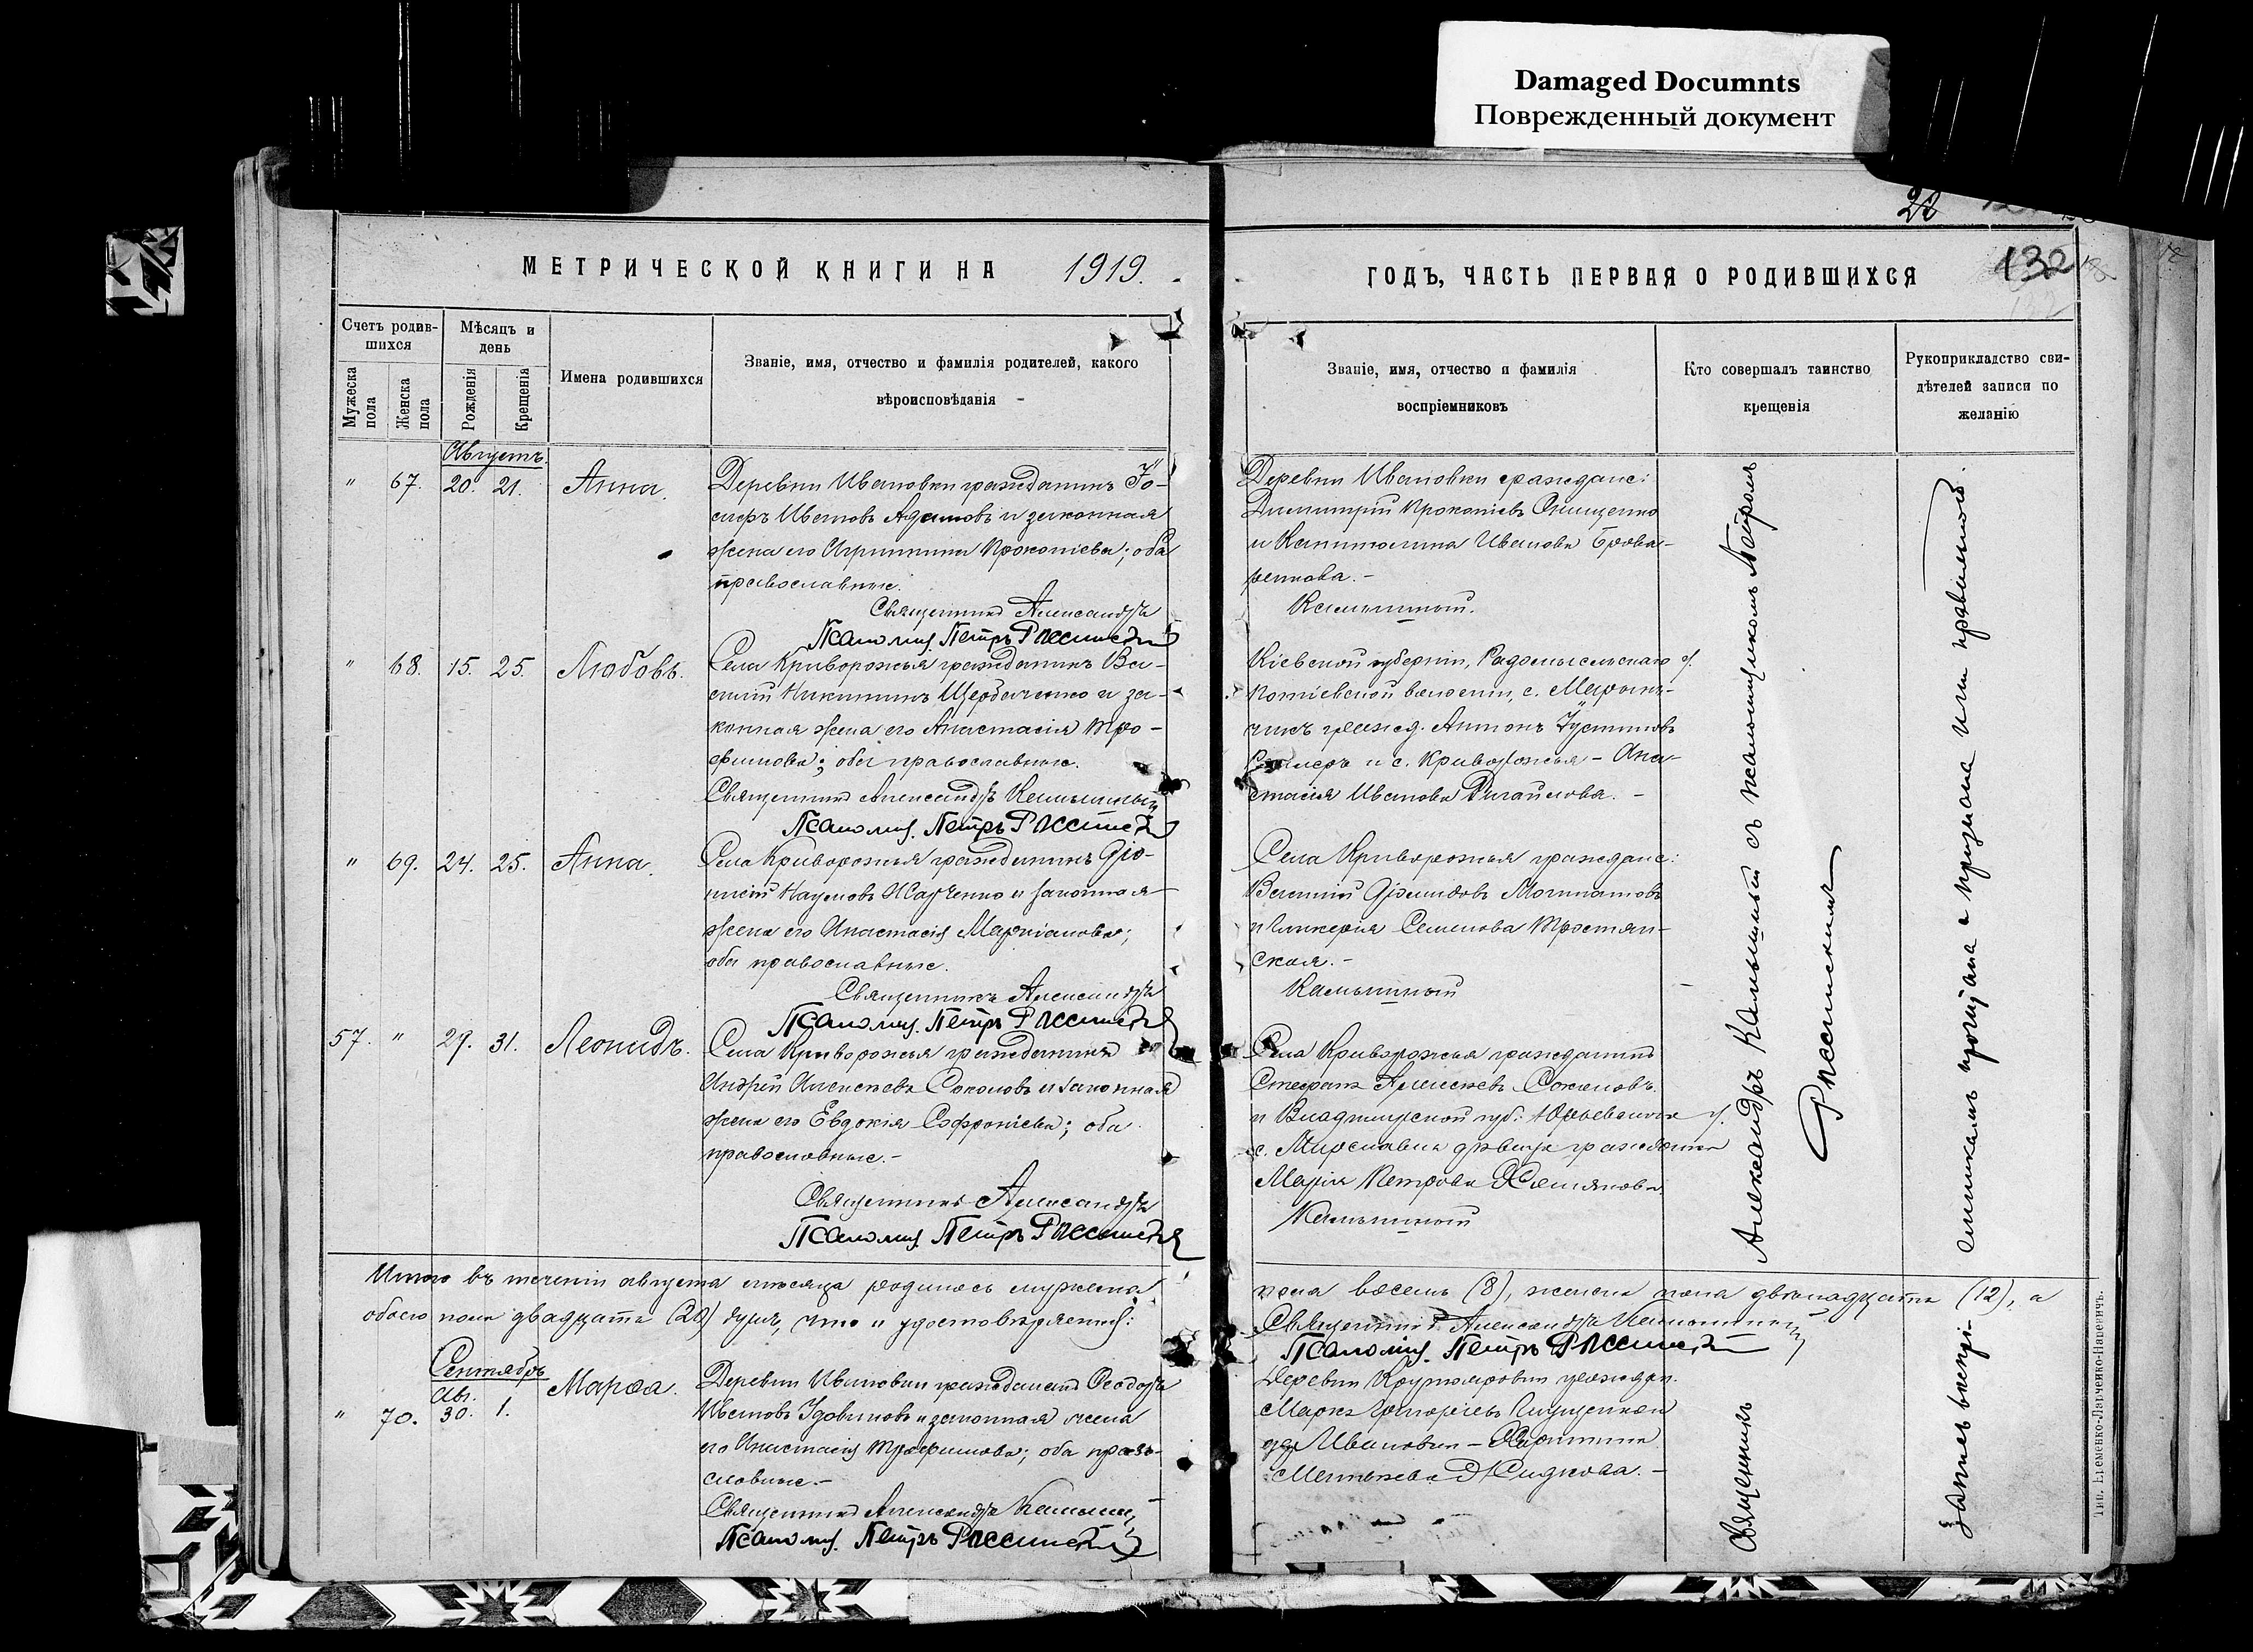 Damaged Documnts
Поврежденный документ
132
МЕТРИЧЕСКОЙ КНИГИ НА 1919.
ГОДЪ, ЧАСТЬ ПЕРВАЯ О РОДИВШИХСЯ
Счетъ родив-
шихся
Мѣсяцъ и
день
Мужеска
пола
Женска
пола
Рожденія
Крещенія
Имена родившихся
Званіе, имя, отчество и фамилія родителей, какого
вѣроисповѣданія
Званіе, имя, отчество и фамилія
воспріемниковъ
Кто совершалъ таинство
крещенія
Рукоприкладство сви-
дѣтелей записи по
желанію
Августъ.
" 67. 20. 21. Анна.
Деревни Ивановки гражданинъ Іо-
сифъ Ивановъ и законная
жена его Агрипина Прокопіева; оба
православные.
Священникъ Александръ
Псаломщ. Петръ Россинскій
Деревни Ивановки граждане:
Димитрій Прокопіевъ Онищенко
и Капитолина Иванова Брова-
ренкова.-
Камышный.
" 68. 15. 25. Любовь.
Села Криворожья гражданинъ Ва-
силій Никитинъ Щербаченко и за-
конная жена его Анастасія Тро-
фимова; оба православные.
Священникъ Александръ Камышный
Псаломщ. Петръ Россинскій
Кіевской губерніи, Радомысльскаго у.
Потіевской волости, с.
гражд. Антонъ Іустиновъ
и с. Криворожья - Ана-
стасія Иванова
" 69. 24. 25. Анна.
Села Криворожья гражданинъ Діо-
нисій Наумовъ Харченко и законная
жена его Анастасія Маркіанова;
оба православные.
Священникъ Александръ
Псаломщ. Петръ Россинскій
Села Криворожья граждане:
Василій Діомидовъ
и Гликерія Семенова Тростян-
ская.-
Камышный
57. " 29. 31. Леонидъ.
Села Криворожья гражданинъ
Андрей Алексѣевъ Соколовъ и законная
жена его Евдокія Софроніева; оба
православные.-
Священникъ Александръ
Псаломщ. Петръ Россинскій
Села Криворожья гражданинъ
Стефанъ Алексѣевъ Соколовъ
и Владимірской губ. Юрьевскаго у.
с. дѣвица гражданка
Марія Петрова
Камышный
Итого въ теченіи августа мѣсяца родилось мужеска
пола восемь (8), женска пола двѣнадцать (12), а
обоего пола двадцать (20) душъ, что и удостовѣряемъ:
Священникъ Александръ Камышный
Псаломщ. Петръ Россинскій
Сентябрь
Ав.
" 70. 30. 1. Марѳа.
Деревни Ивановки гражданинъ Ѳеодоръ
Ивановъ и законная жена
его Анастасія Трофимова; оба право-
славные.-
Священникъ Александръ Камышный
Псаломщ. Петръ Россинскій
Деревни гражданинъ
Маркъ Григорьевъ
д. Ивановки - Харитина
Матвѣева
Священникъ Александръ Камышный съ псаломщикомъ Петромъ
Россинскимъ
Тип. Еременко-Ларченко-Наревичъ.